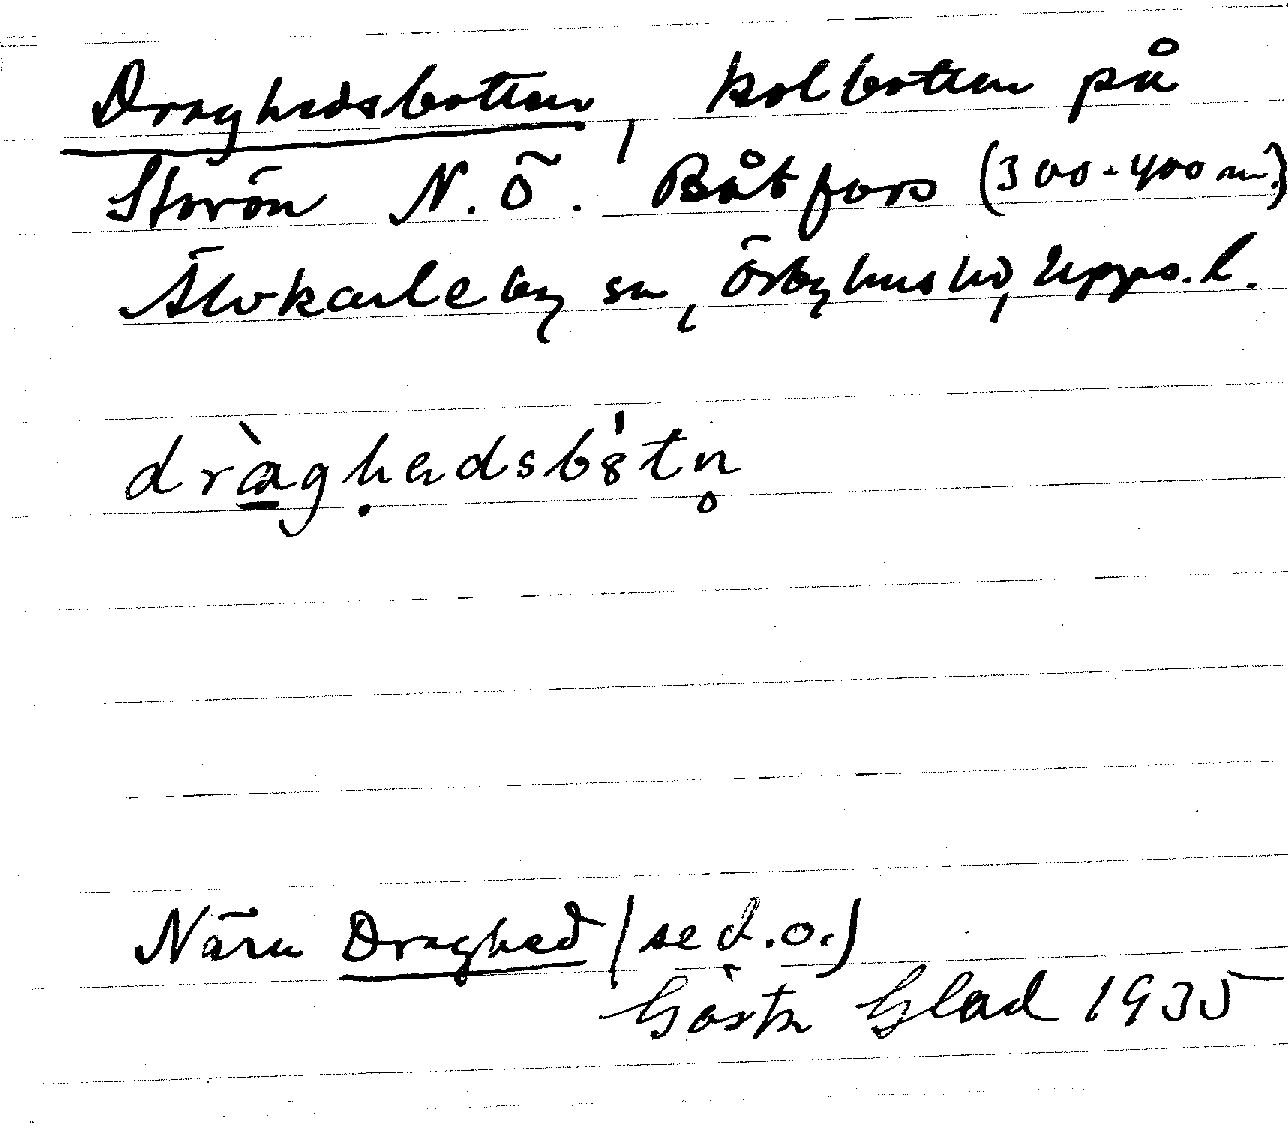 Draghedsbotten, kolbotten på
Storön N.Ö. Båtfors (300-400 m.)
Älvkarleby sn, Örbyhus hd, Upps. l.
dràghedsbòtn̥
Nära Draghed (se d.o.)
Gösta Glad 1935